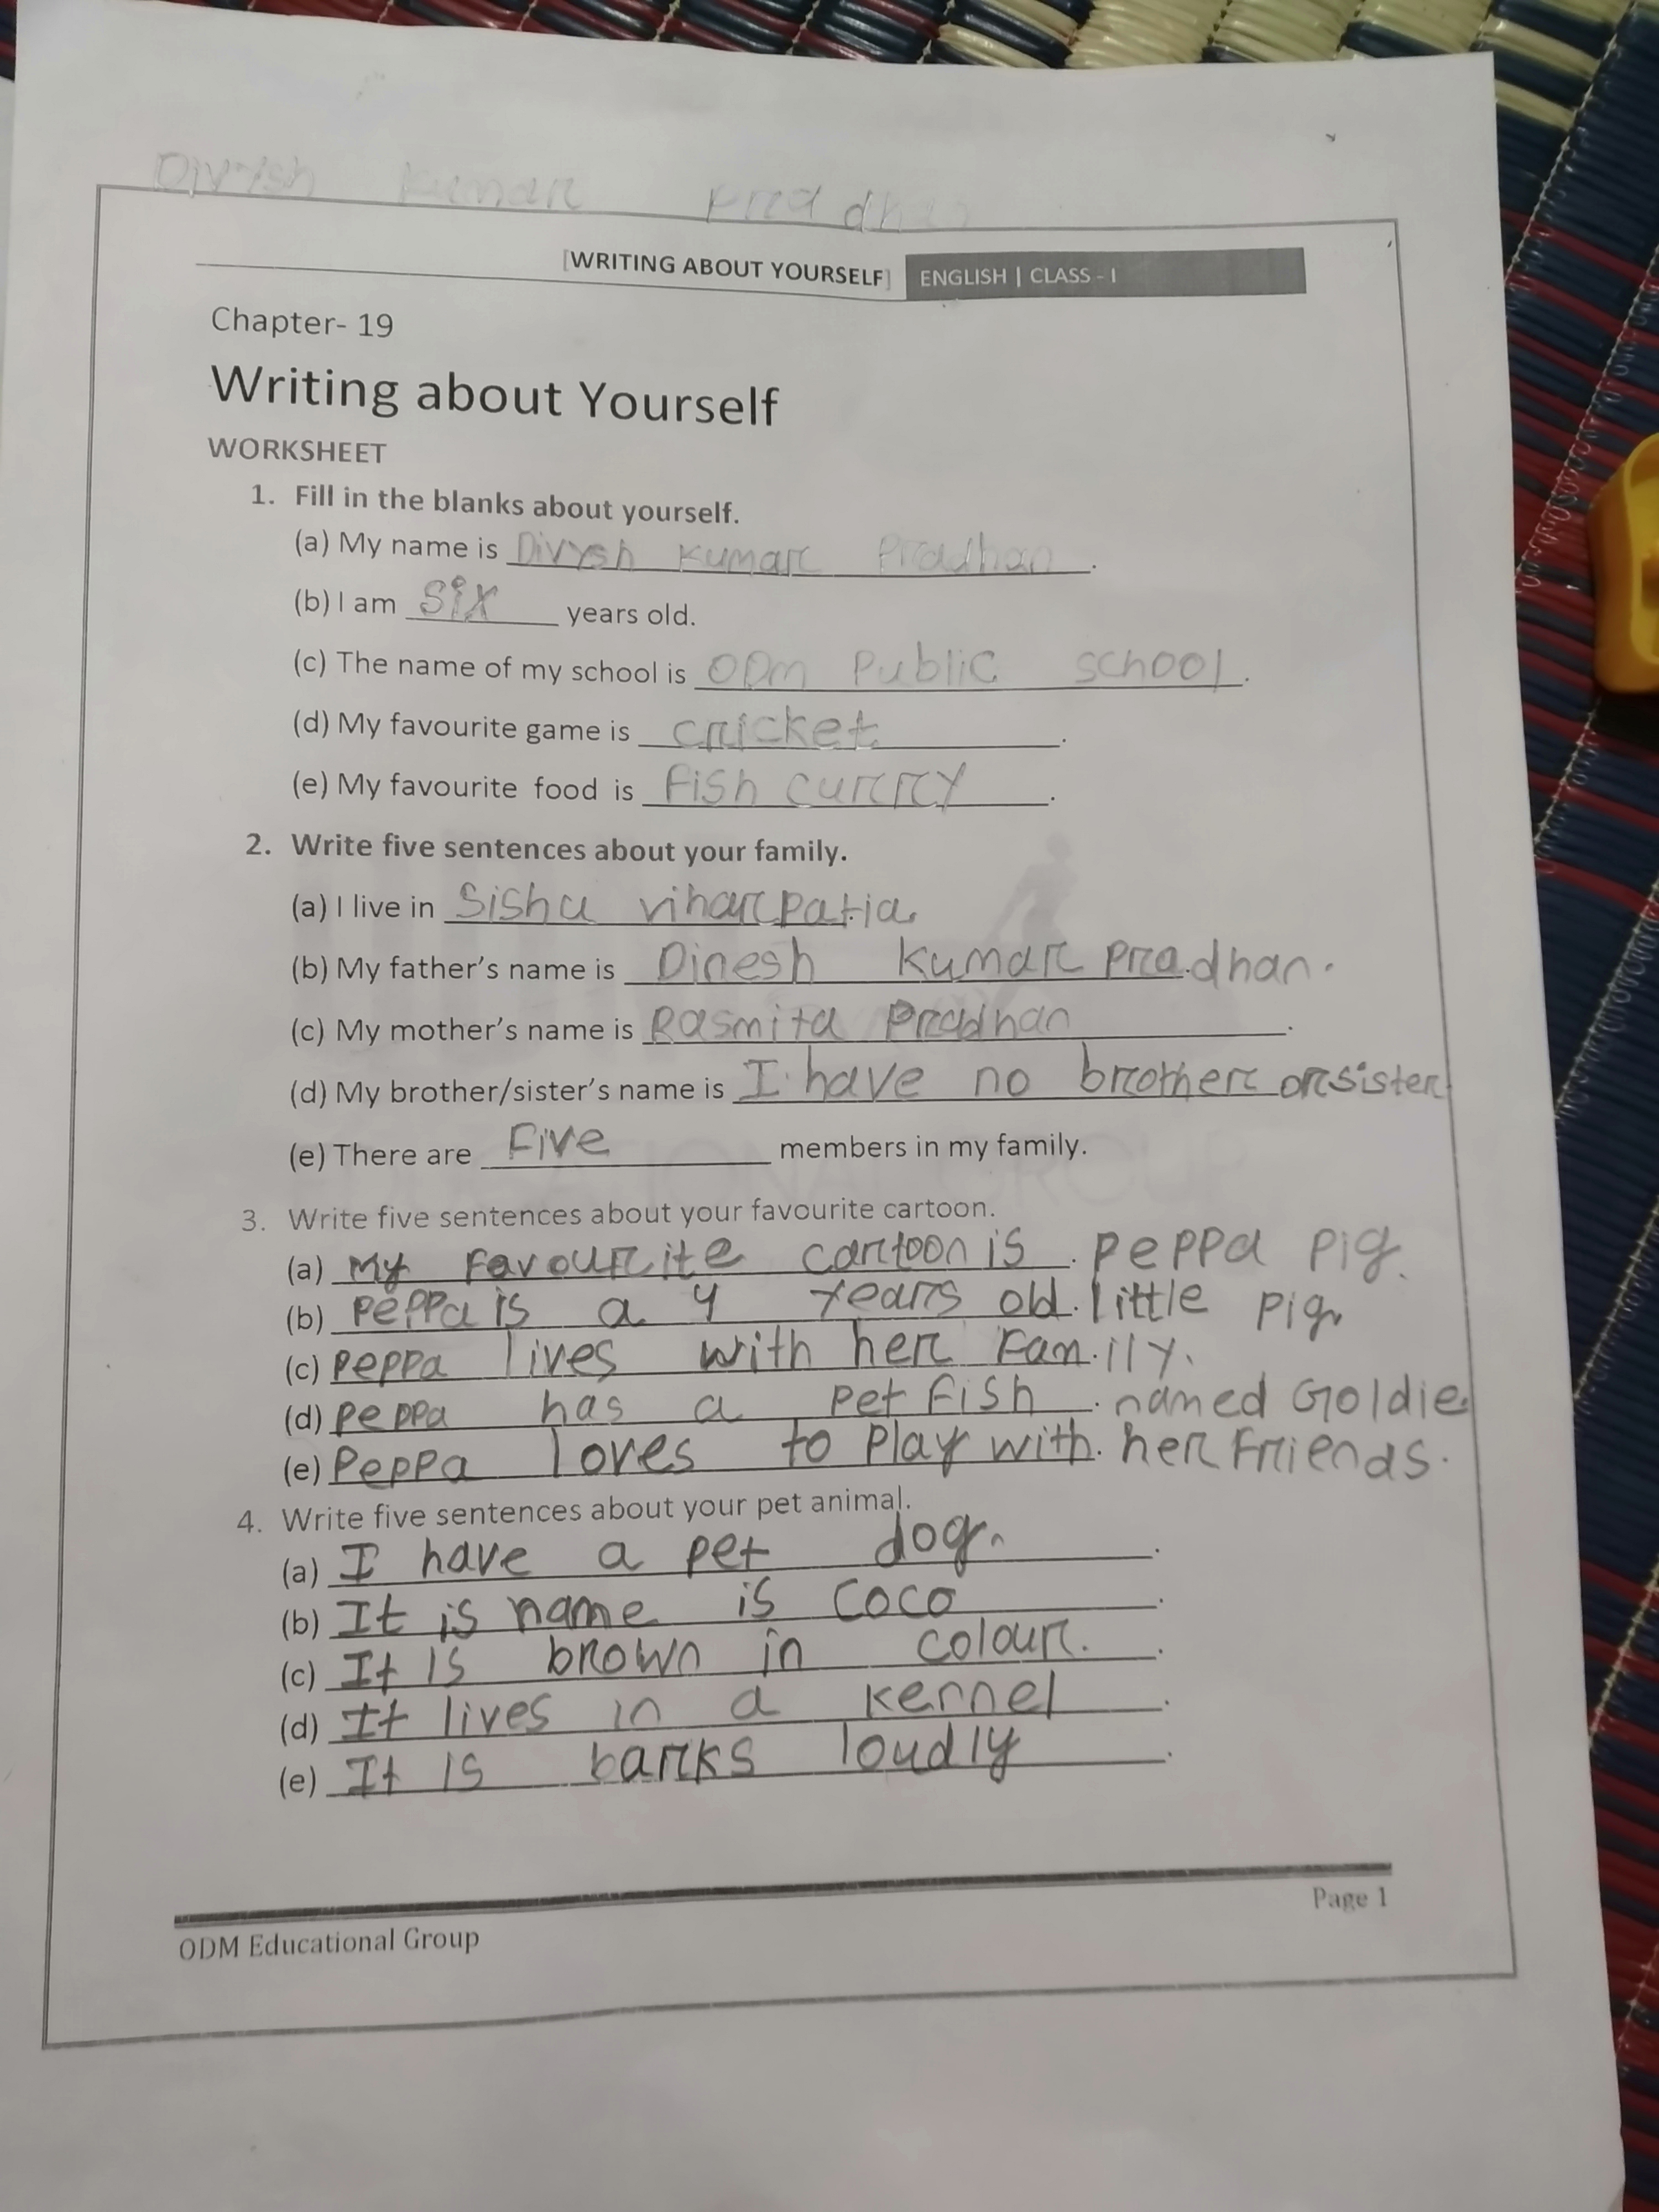 Divysh Kumar Pradhan
[WRITING ABOUT YOURSELF] ENGLISH | CLASS - I
Chapter- 19
Writing about Yourself
WORKSHEET
1. Fill in the blanks about yourself.
(a) My name is Divysh Kumar Pradhan.
(b) I am six years old.
(c) The name of my school is ODm Public school.
(d) My favourite game is cricket.
(e) My favourite food is Fish curry.
2. Write five sentences about your family.
(a) I live in Sishu vihar patia.
(b) My father's name is Dinesh Kumar Pradhan.
(c) My mother's name is Rasmita Pradhan.
(d) My brother/sister's name is I have no brother or sister
(e) There are Five members in my family.
3. Write five sentences about your favourite cartoon.
(a) My Favourite cartoon is Peppa Pig.
(b) Peppa is a 4 years old little pig.
(c) Peppa lives with her Family.
(d) Peppa has a Pet Fish named Goldie
(e) Peppa loves to Play with her Friends.
4. Write five sentences about your pet animal.
(a) I have a pet dog.
(b) It is name is Coco.
(c) It is brown in colour.
(d) It lives in a kernel.
(e) It is barks loudly.
ODM Educational Group
Page 1